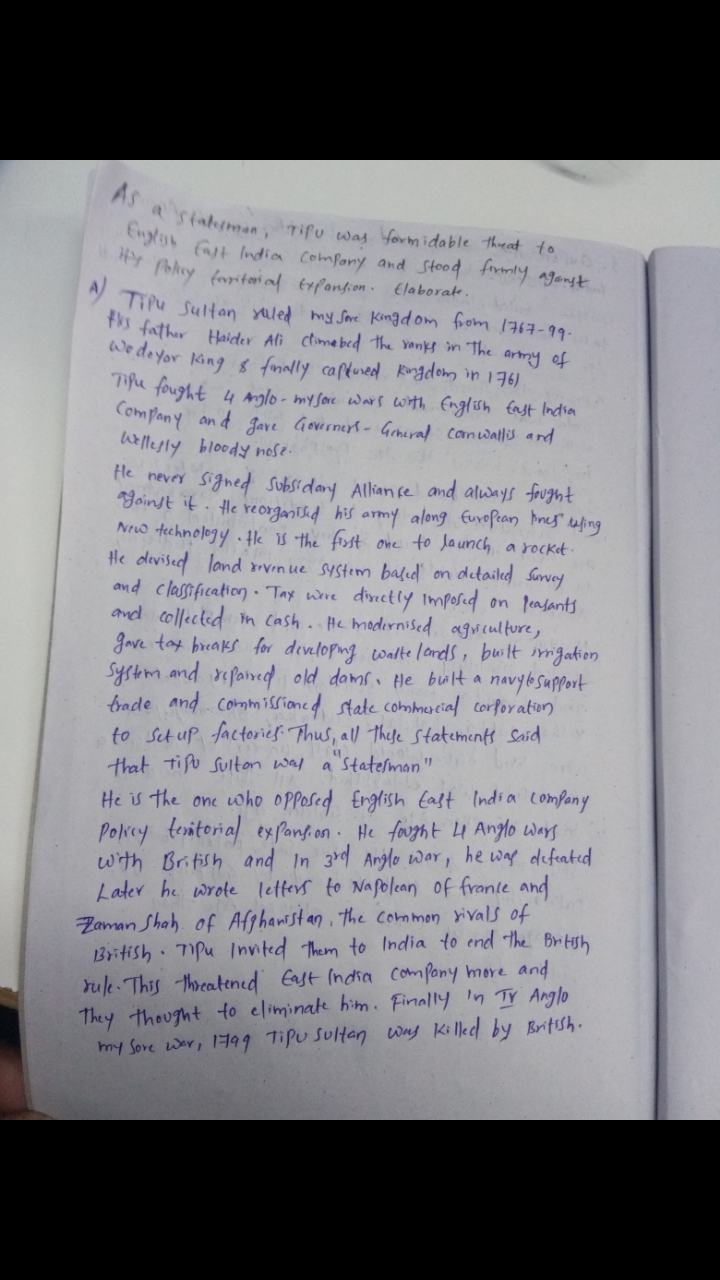 As a statesman, Tipu was formidable threat to
English East India Company and stood firmly against
His Policy territorial Expansion. Elaborate.
A) Tipu Sultan ruled mysore kingdom from 1767-99.
His father Haider Ali climebed the ranks in The army of
Wodeyar king & finally captured kingdom in 1761
Tipu fought 4 Anglo-mysore wars with English East India
Company and gave Governers-General cornwallis and
Wellesly bloody nose.
He never signed Subsidary Alliance and always fought
against it. He reorganised his army along European lines using
New technology. He is the first one to launch a rocket.
He devised land revenue system based on detailed survey
and classification. Tax were directly imposed on peasants
and collected in cash. He modernised agriculture,
gave tax breaks for developing wastelands, built irrigation
system and repaired old dams. He built a navy to support
trade and commissioned state commercial corporation
to setup factories. Thus, all these statements said
that Tipu Sultan was a "Statesman"
He is the one who opposed English East India company
Policy teritorial expansion. He fought 4 Anglo wars
with British and in 3rd Anglo war, he was defeated
Later he wrote letters to Napolean of france and
Zaman Shah of Afghanistan, the common rivals of
British. Tipu Invited them to India to end the British
rule. This threatened East India company more and
They thought to eliminate him. Finally in IV Anglo
mysore war, 1799 Tipu Sultan was killed by British.